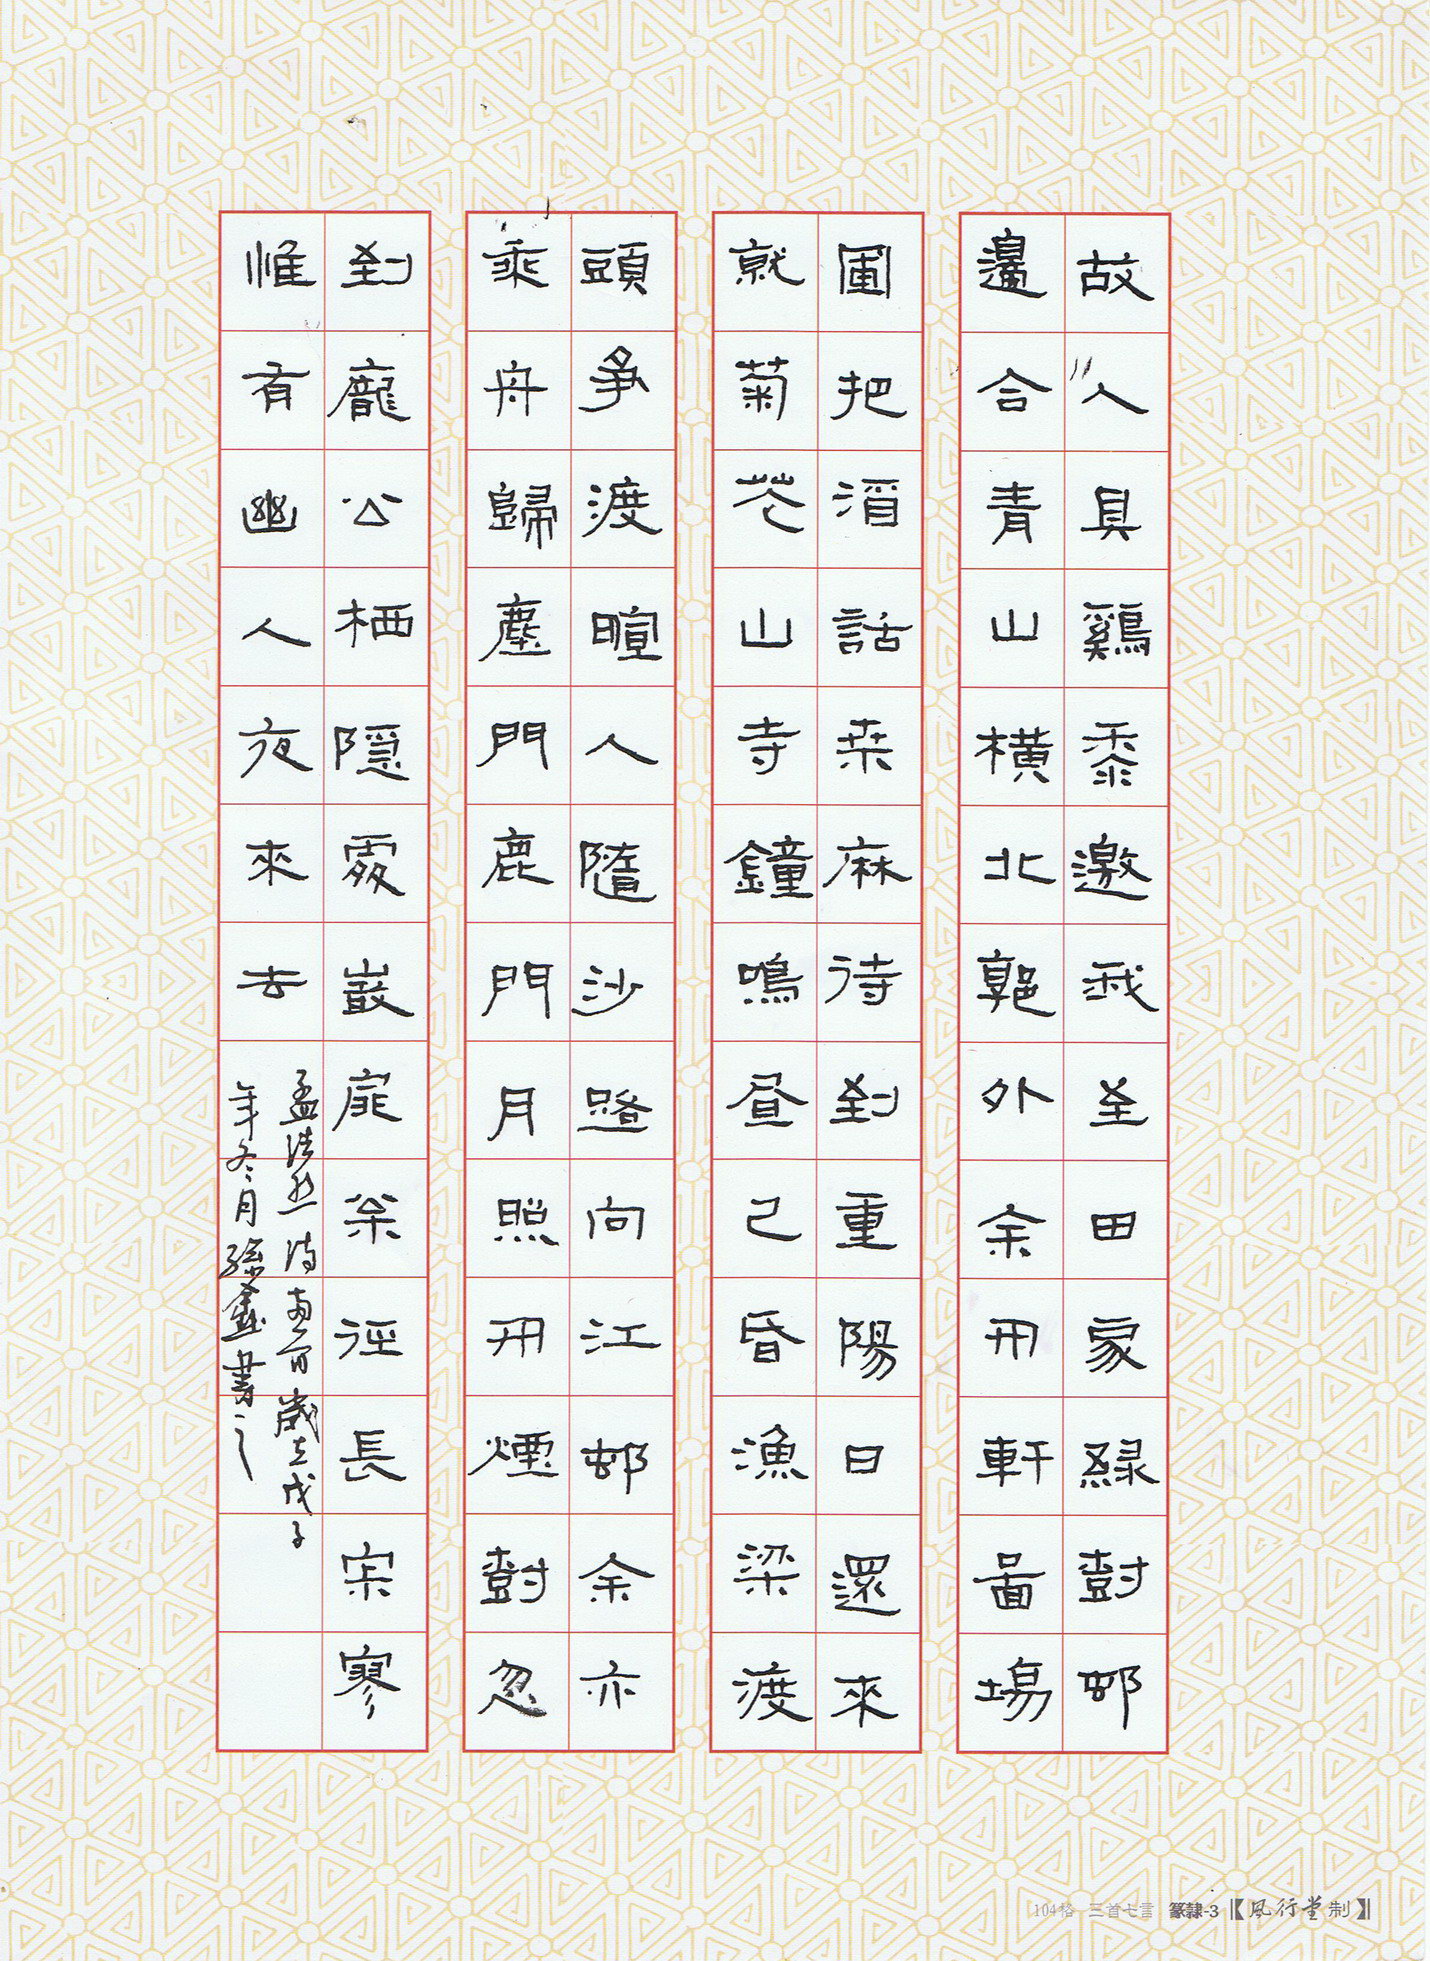 故人具鷄黍邀我至田家緑尌邨
邊合青山橫北郭外余开軒面場
圃把酒話桑麻待到重陽日還來
就菊花山寺鐘鳴昼已昏漁梁渡
頭爭渡暄人隨沙路向江邨余亦
乘舟歸塵門鹿門月照开煙尌忽
到龐公栖隱處巖扉枀徑長寂寥
惟有幽人夜來去
孟浩然詩首歲在戊子
年冬月孫鑫書之
104格 三首七言 篆隸-3【風行堂制】